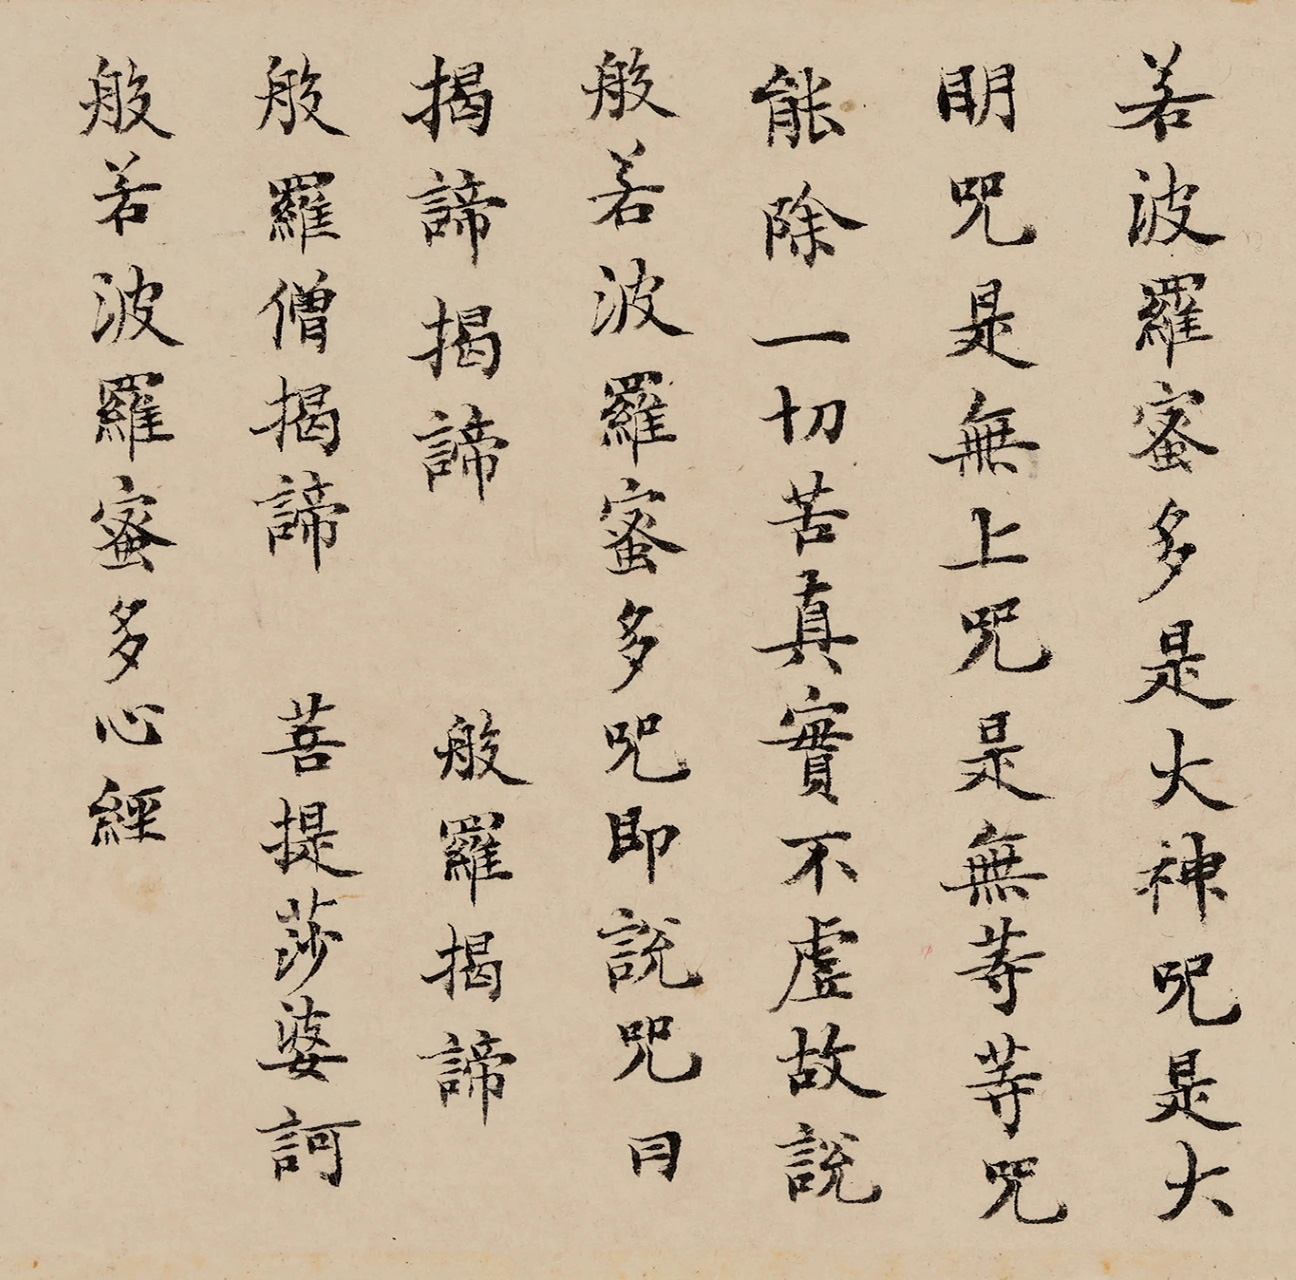 若波羅蜜多是大神呪是大
明呪是無上呪是無等等呪
能除一切苦真實不虛故說
般若波羅蜜多呪即說呪曰
揭諦揭諦　般羅揭諦
般羅僧揭諦　菩提莎婆訶
般若波羅蜜多心經